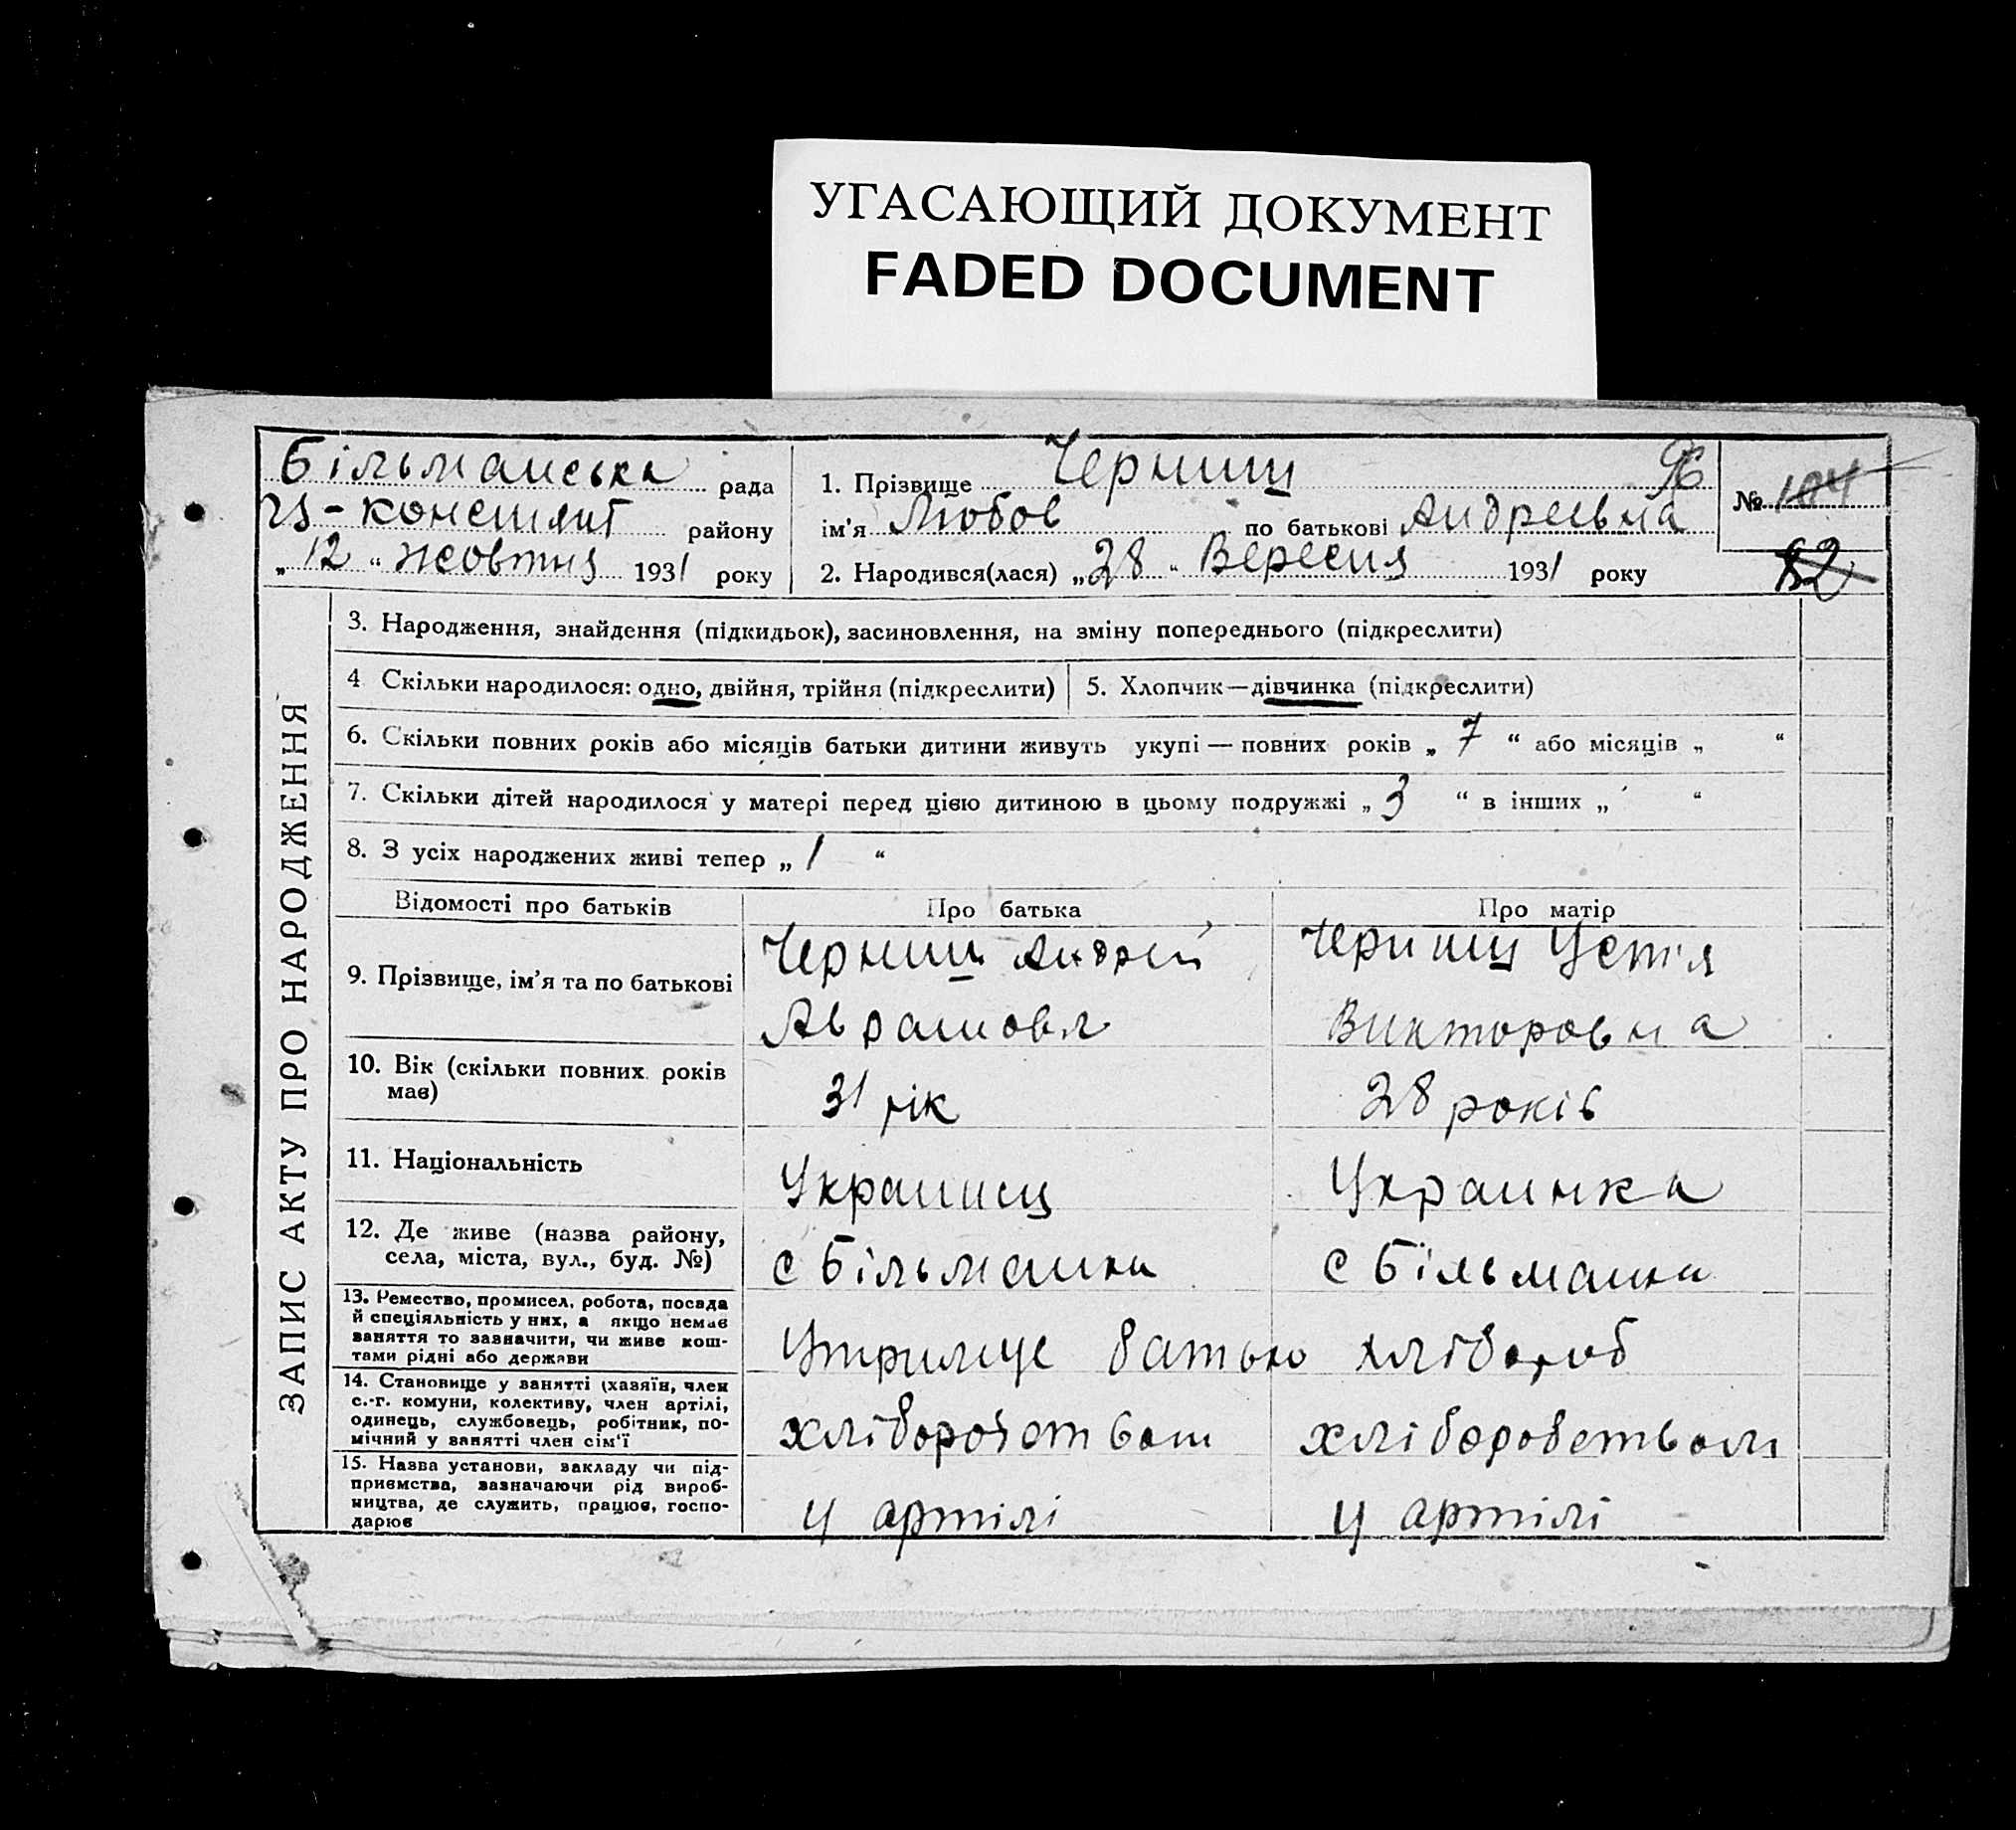 УГАСАЮЩИЙ ДОКУМЕНТ
FADED DOCUMENT
Більманська рада
район у
„12“ жовтня 1931 року
1. Прізвище Черниш
ім'я Любов по батькові Андреевна
2. Народився(лася) „28“ Вересня 1931 року
№ 104
82
ЗАПИС АКТУ ПРО НАРОДЖЕННЯ
3. Народження, знайдення (підкидьок), засиновлення, на зміну попереднього (підкреслити)
4 Скільки народилося: одно, двійня, трійня (підкреслити)
5. Хлопчик—дівчинка (підкреслити)
6. Скільки повних років або місяців батьки дитини живуть укупі — повних років „7“ або місяців „ “
7. Скільки дітей народилося у матері перед цією дитиною в цьому подружжі „3“ в інших „ “
8. З усіх народжених живі тепер „1“
Відомості про батьків
Про батька
Про матір
9. Прізвище, ім'я та по батькові
Черниш Андрей
Аврамов
Черниш Устія
Викторовна
10. Вік (скільки повних років
має)
31 рік
28 років
11. Національність
Украинец
Украинка
12. Де живе (назва району,
села, міста, вул., буд. №)
с Більманка
с Більманка
13. Ремество, промисел, робота, посада
й спеціяльність у них, а якщо немає
заняття то зазначити, чи живе кош-
тами рідні або держави
Утримує батько хлібороб
14. Становище у занятті (хазяїн, член
с.-г. комуни, колективу, член артілі,
одинець, службовець, робітник, по-
мічний у занятті член сім'ї
хліборобством
хліборобством
15. Назва установи, закладу чи під-
приємства, зазначаючи рід вироб-
ництва, де служить, працює, госпо-
дарює
у артілі
у артілі